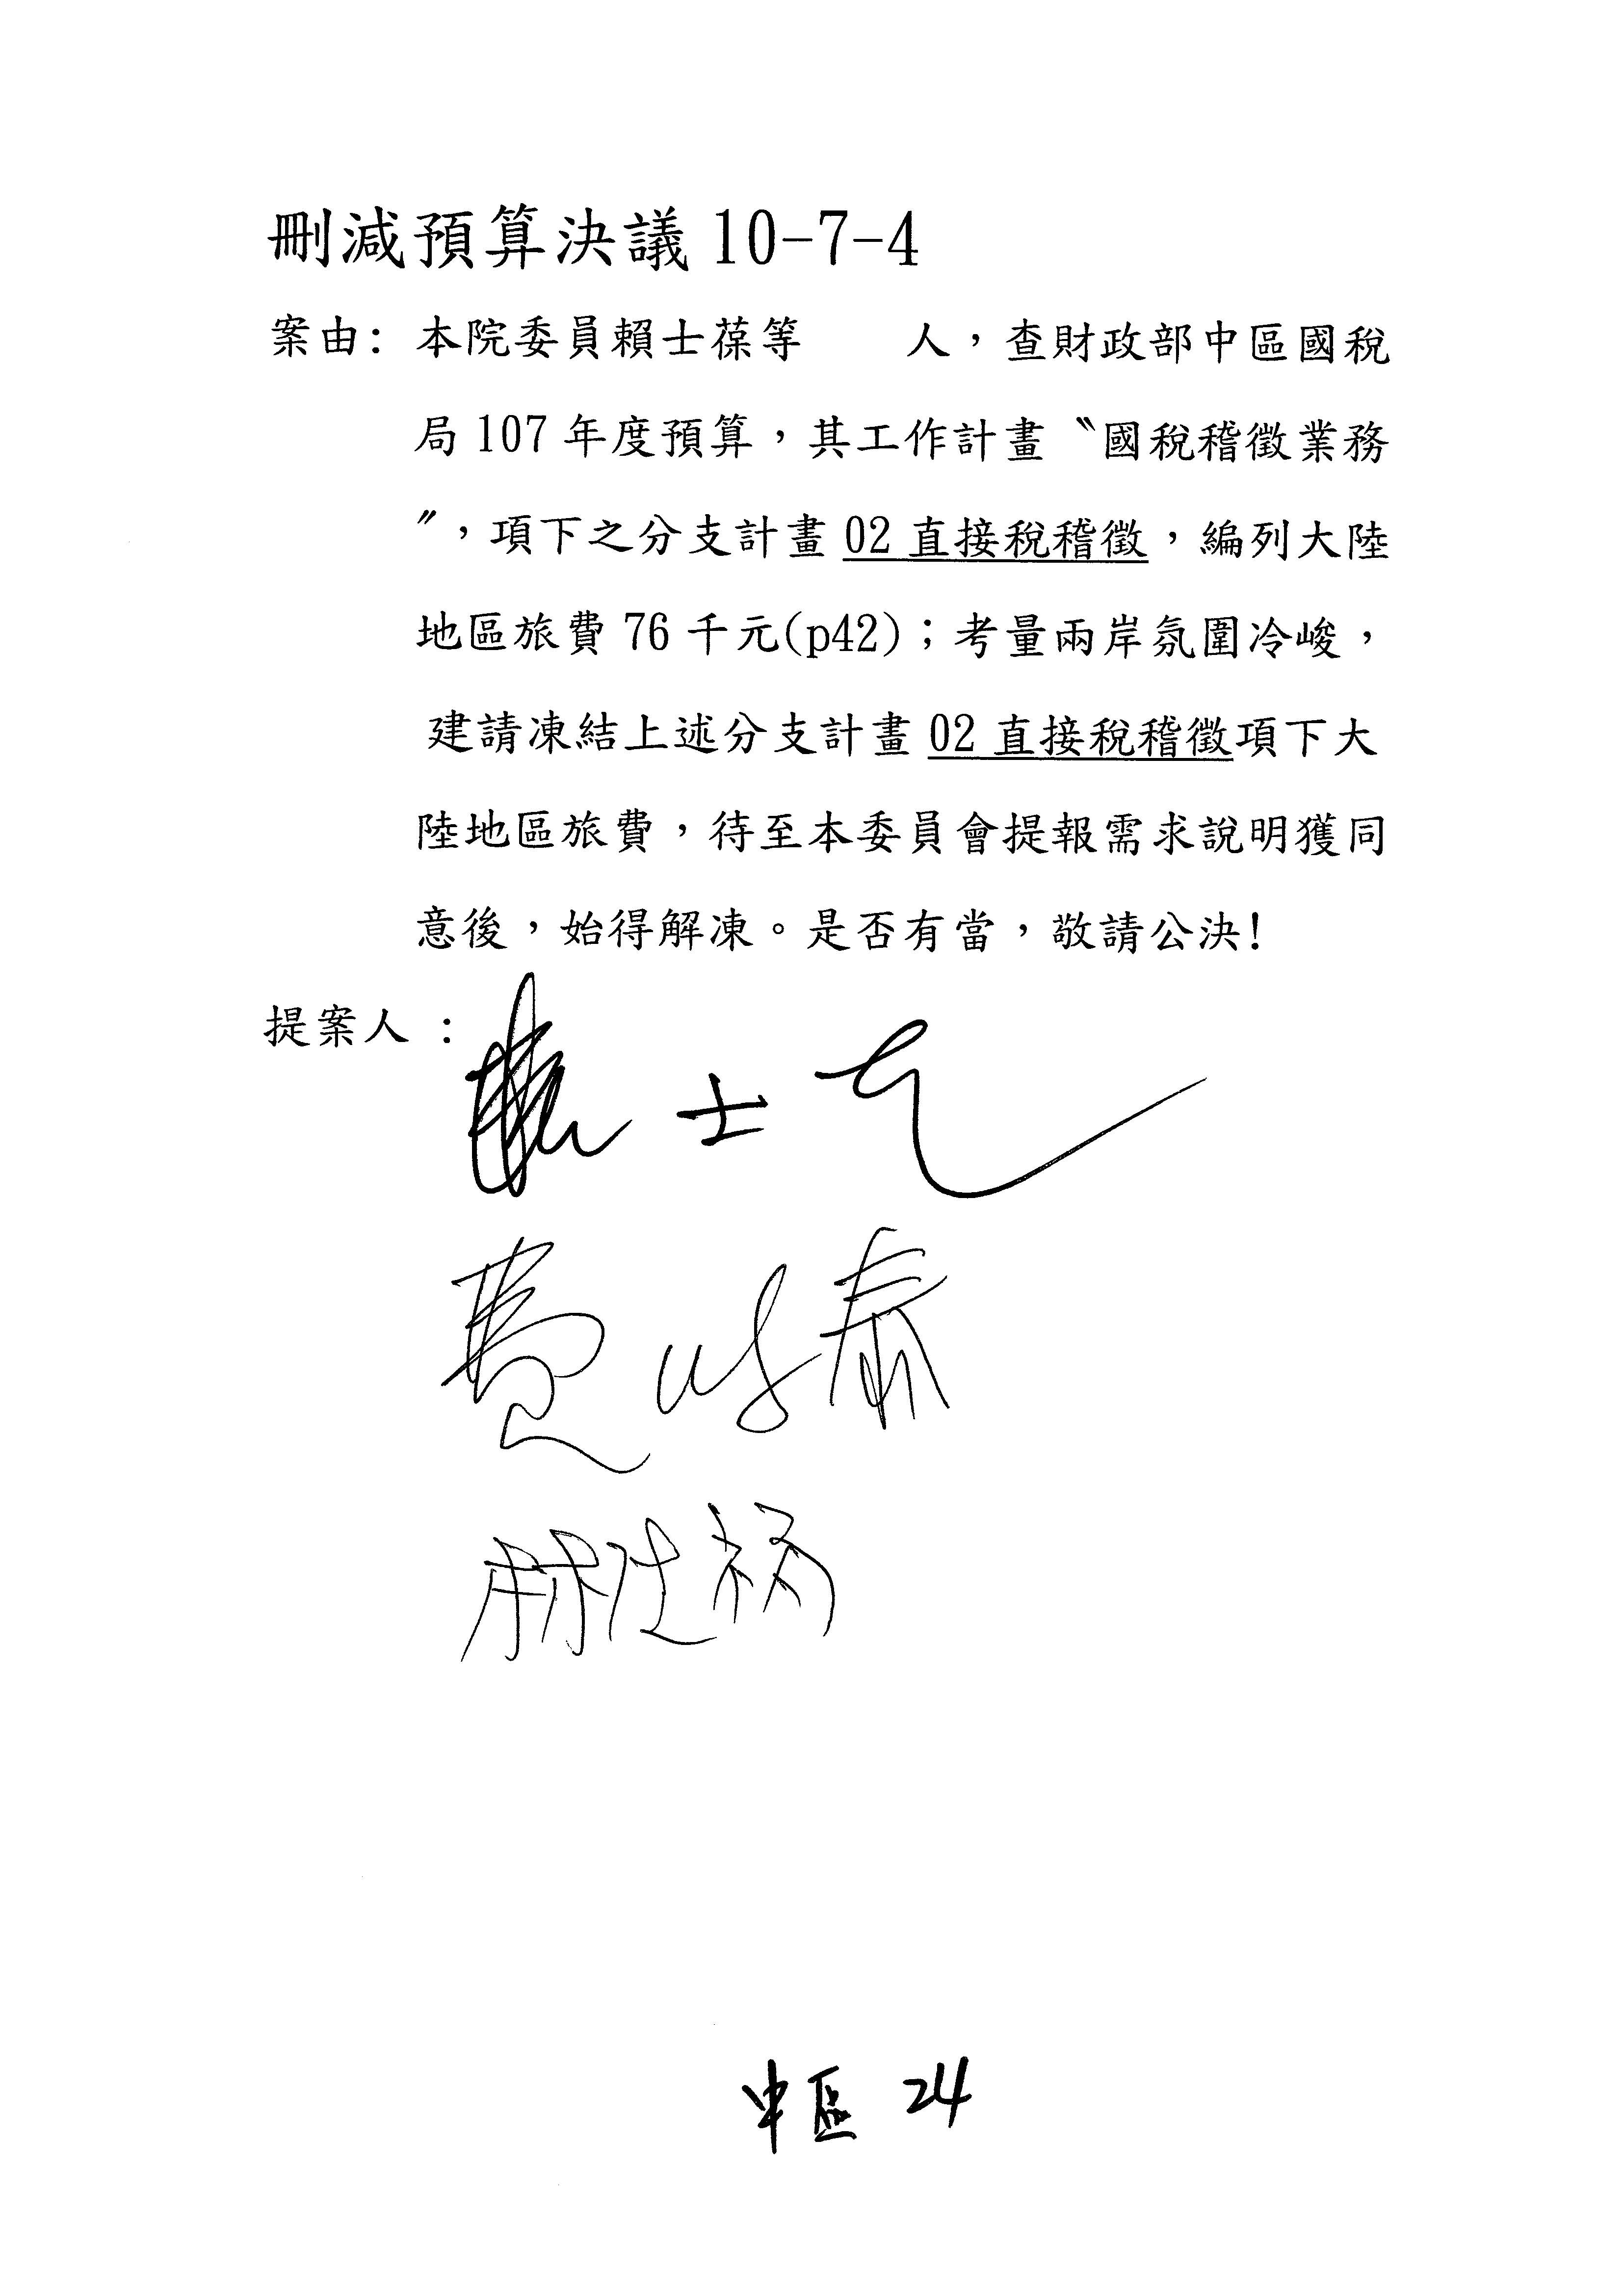 刪減預算決議10-7-4
案由: 本院委員賴士葆等　　人，查財政部中區國稅
局107年度預算，其工作計畫〝國稅稽徵業務
〞，項下之分支計畫02直接稅稽徵，編列大陸
地區旅費76千元(p42)；考量兩岸氛圍冷峻，
建請凍結上述分支計畫02直接稅稽徵項下大
陸地區旅費，待至本委員會提報需求說明獲同
意後，始得解凍。是否有當，敬請公決!
提案人：
費鴻泰
中區 24